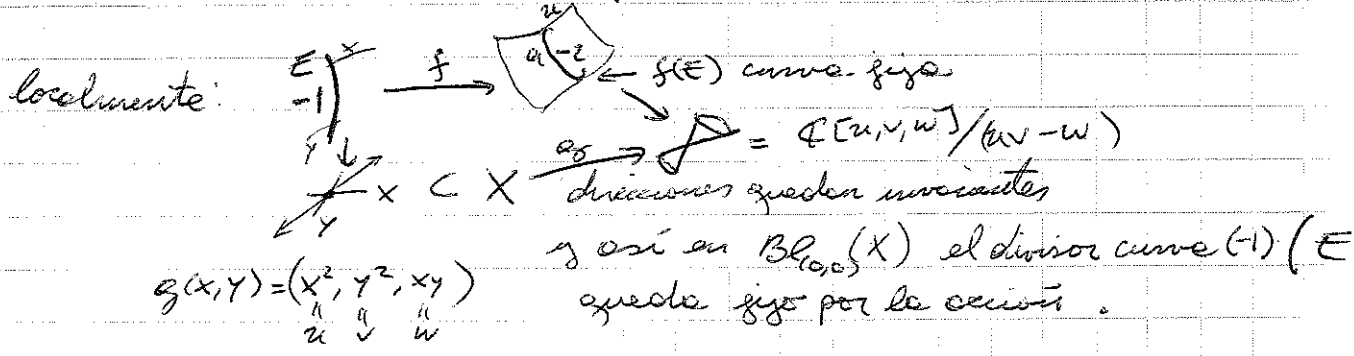 localmente: E -1 X Y f u a -2 ← f(E) curva fija
X Y ⊂ X g = ℂ[u,v,w]/(uv-w)
direcciones quedan invariantes
y así en Bl(0,0)(X) el divisor curva (-1) ( E
g(x,y)=(x², y², xy) queda fijo por la acción.
u v w